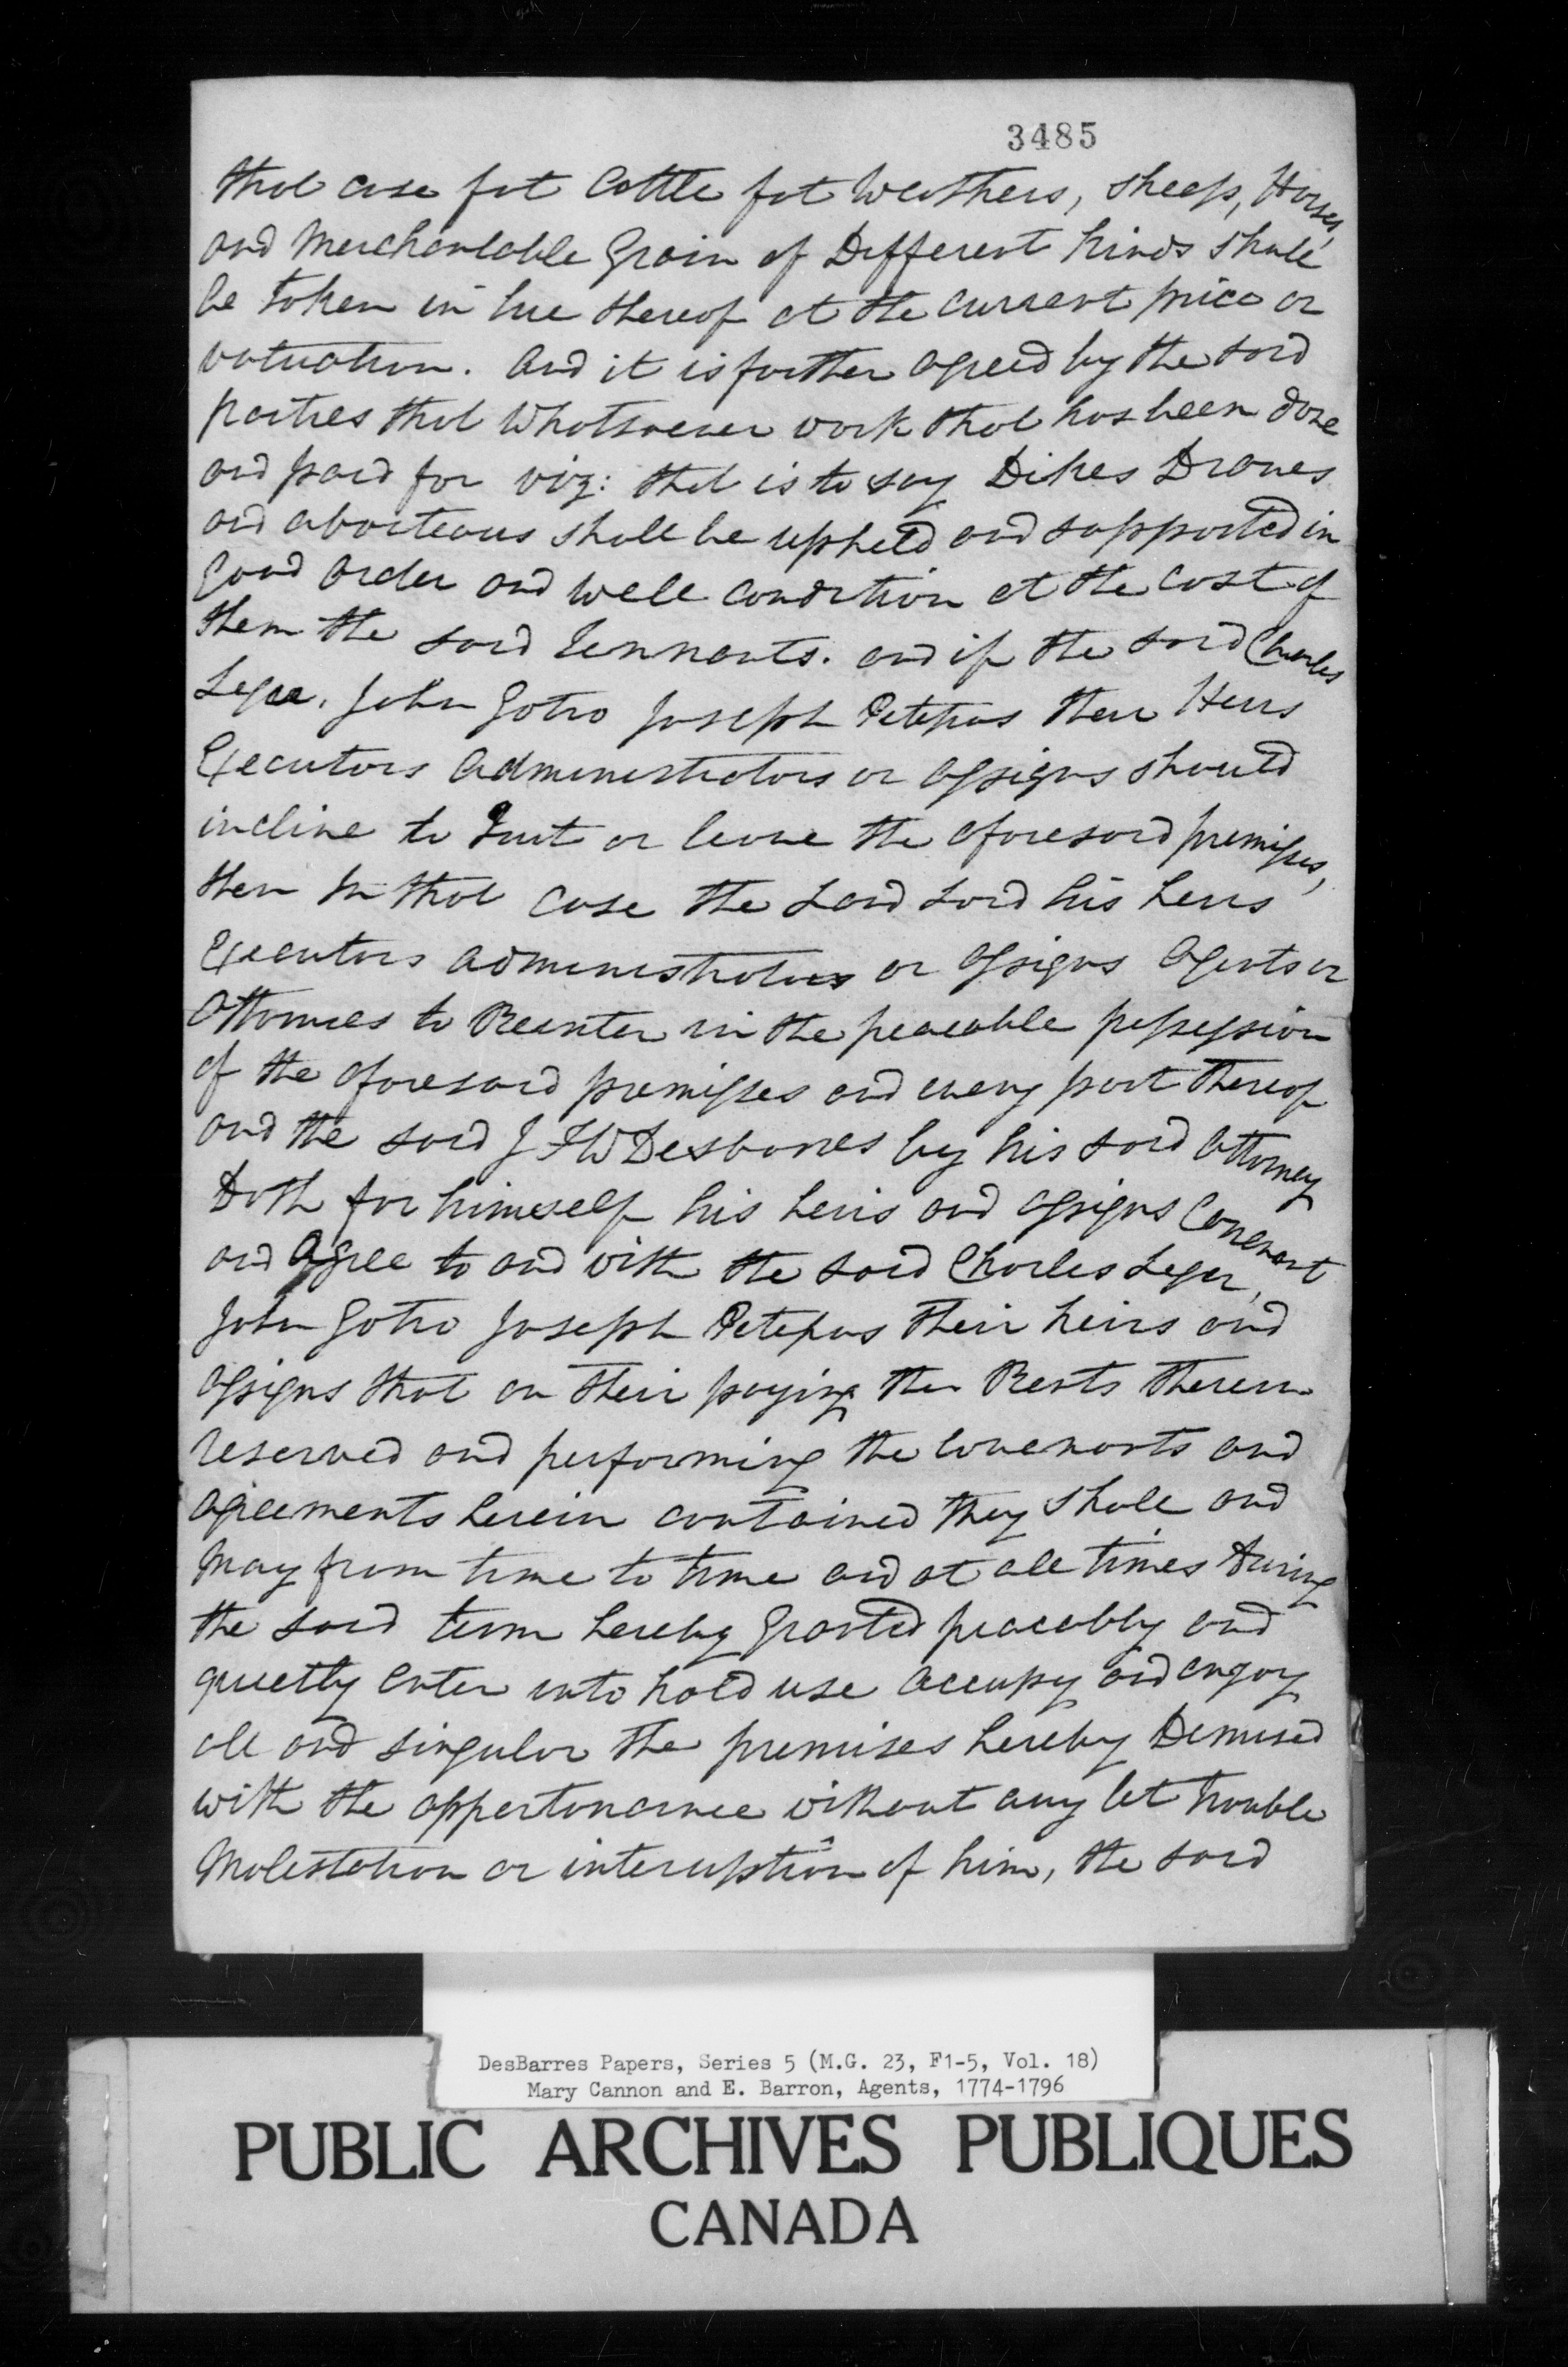 3485
that case fat Cattle fat Weathers, Sheep, Horses,
and Merchantable Grain of Different kinds shall
be taken in lue thereof at the current price or
valuation. And it is further agreed by the said
parties that Whatsoever work that has been done
and paid for viz: that is to say Dikes Dranes
and aborteaus shall be upheld and supported in
good order and well condition at the cost of
them the said Tennants. and if the said Charles
Leger, John Gotro Joseph Petepas their Heirs
Executors Administrators or Assigns should
incline to Quit or leave the aforesaid premisses,
then in that case the Land Lord his heirs
Executors Administrators or Assigns Agents or
Attornies to Reenter in the peaceable possession
of the aforesaid premisses and every part thereof
and the said J F W Desbarres by his said Attorney
Doth for himself his heirs and Assigns Covenant
and Agree to and with the said Charles Leger,
John Gotro Joseph Petepas their heirs and
Assigns that on their paying the Rents therein
reserved and performing the Covenants and
Agreements herein contained they shall and
May from time to time and at all times During
the said term hereby Granted peacably and
quietly Enter into hold use occupy and enjoy
all and singular the premises hereby Demised
with the appertonannce without any let trouble
Molestation or interuption of him, the said
DesBarres Papers, Series 5 (M.G. 23, F1-5, Vol. 18)
Mary Cannon and E. Barron, Agents, 1774-1796
PUBLIC ARCHIVES PUBLIQUES
CANADA